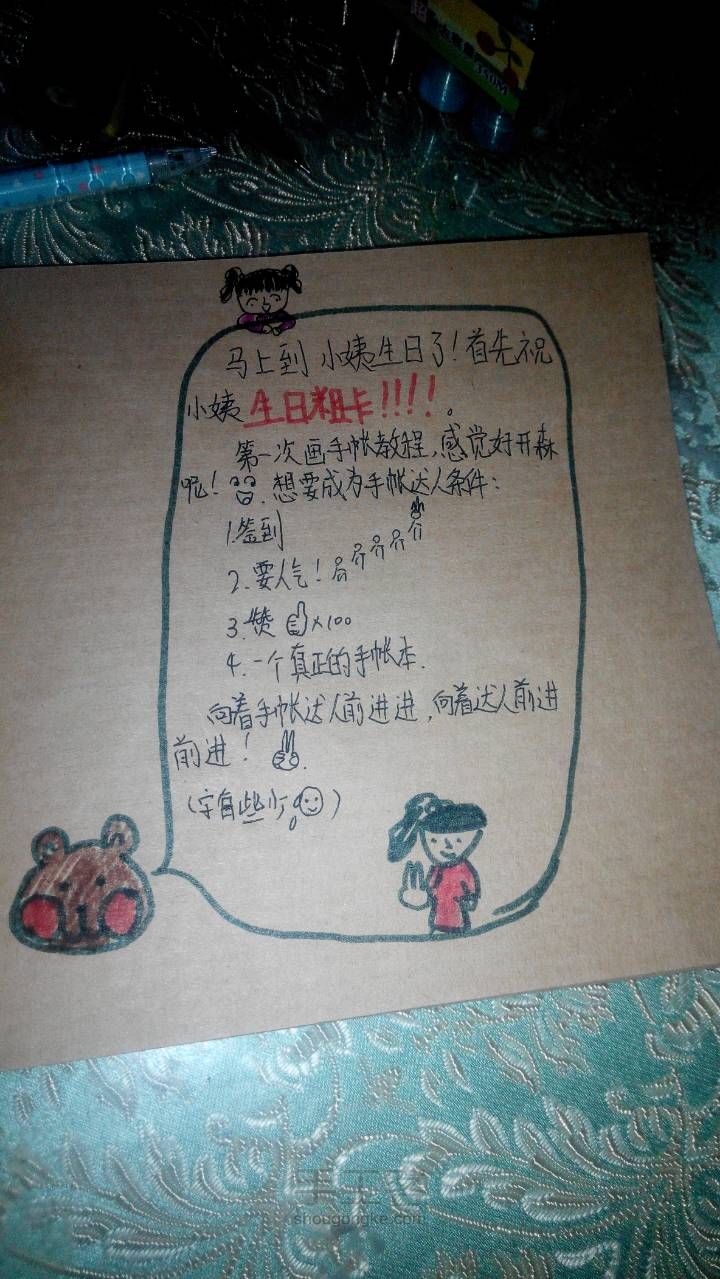 马上到 小姨生日了！首先祝
小姨生日粗卡！！！！。
第一次画手帐教程，感觉好开森
呢！ 想要成为手帐达人条件：
1.签到
2.要人气！
3.赞 x100
4.一个真正的手帐本.
向着手帐达人前进进，向着达人前进
前进！
（字有些少）
手工客
shougongke.com